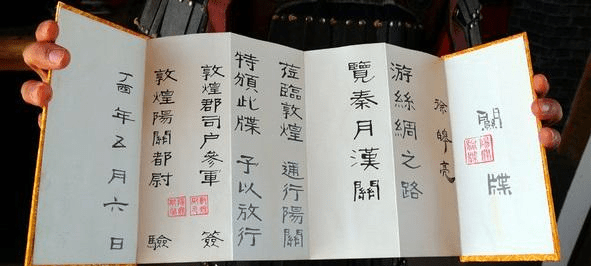 關牒
徐 亮
游絲綢之路
覽秦月漢關
蒞臨敦煌 通行陽關
特頒此牒 予以放行
敦煌郡司戶參軍 簽
敦煌陽關都尉 驗
丁酉年五月六日